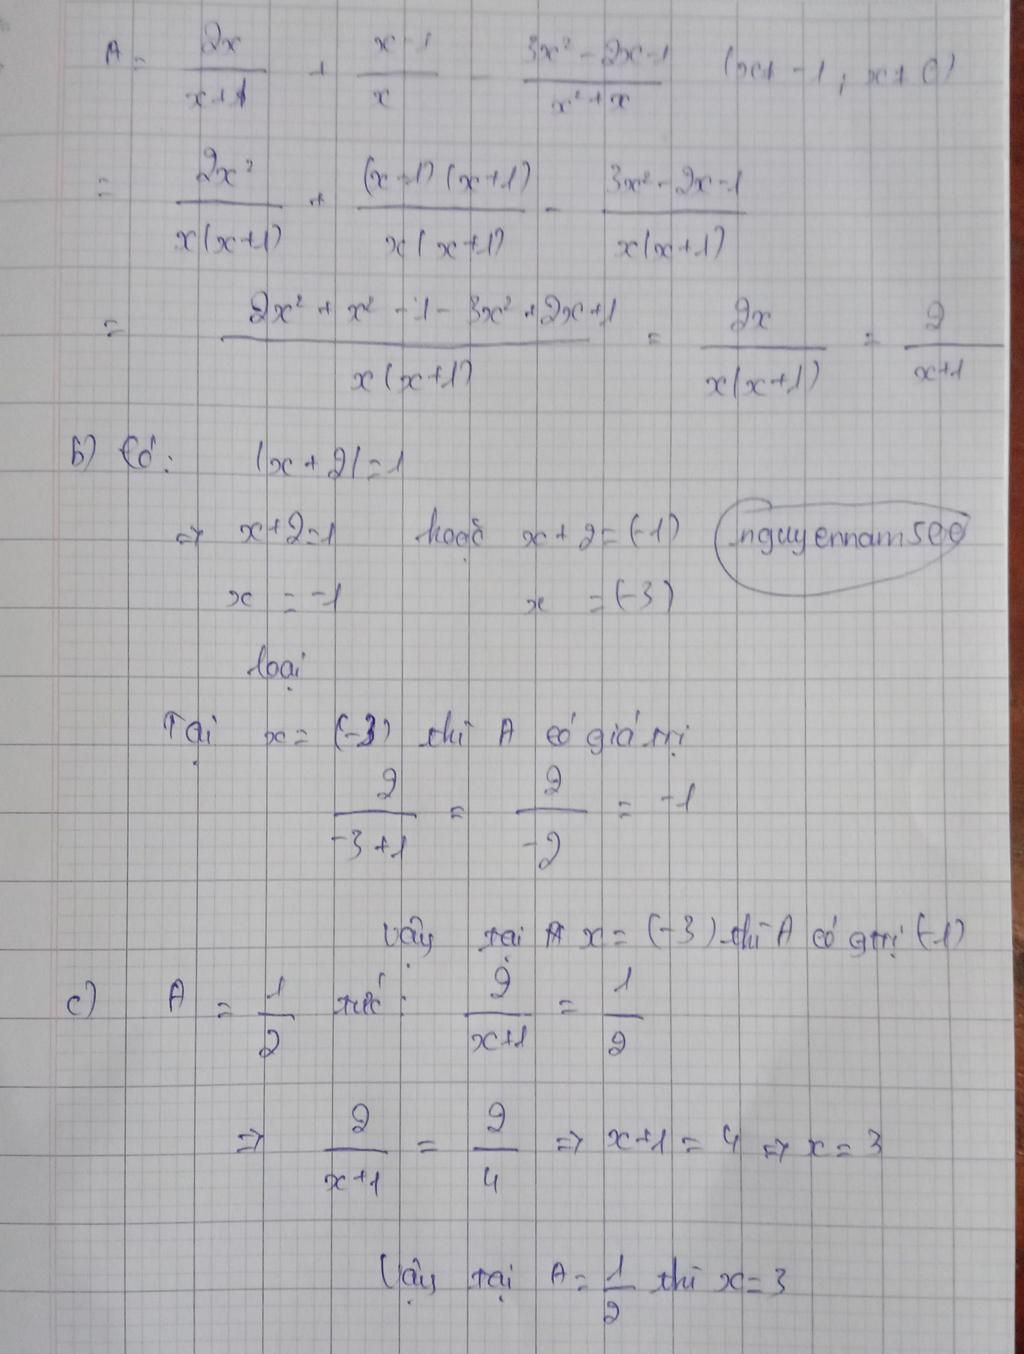 A = 2x/(x+1) + (x-1)/x - (3x² - 2x - 1)/(x² + x) (x ≠ -1, x ≠ 0)
= 2x²/(x(x+1)) + (x-1)(x+1)/(x(x+1)) - (3x² - 2x - 1)/(x(x+1))
= (2x² + x² - 1 - 3x² + 2x + 1)/(x(x+1)) = 2x/(x(x+1)) = 2/(x+1)
b) Có: |x + 2| = 1
⇒ x+2=1 hoặc x+2=(-1) nguyennam500
x = -1 x = (-3)
loại
Tại x = (-3) thì A có giá trị
2/(-3+1) = 2/(-2) = -1
Vậy tại A x = (-3) thì A có gtrị (-1)
c) A = 1/2 tức: 2/(x+1) = 1/2
⇒ 2/(x+1) = 2/4 ⇒ x+1 = 4 ⇒ x = 3
Vậy tại A = 1/2 thì x = 3